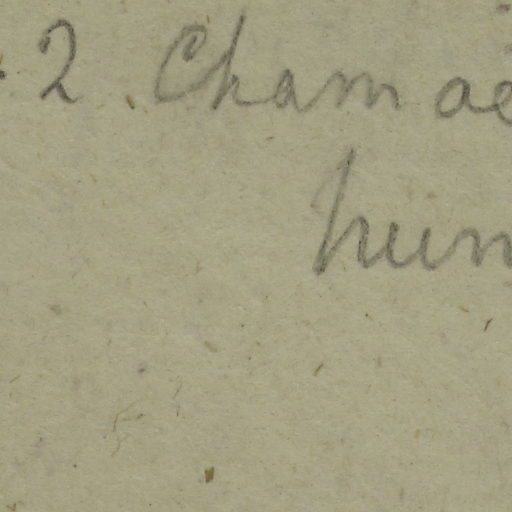 2. Chamae
hum